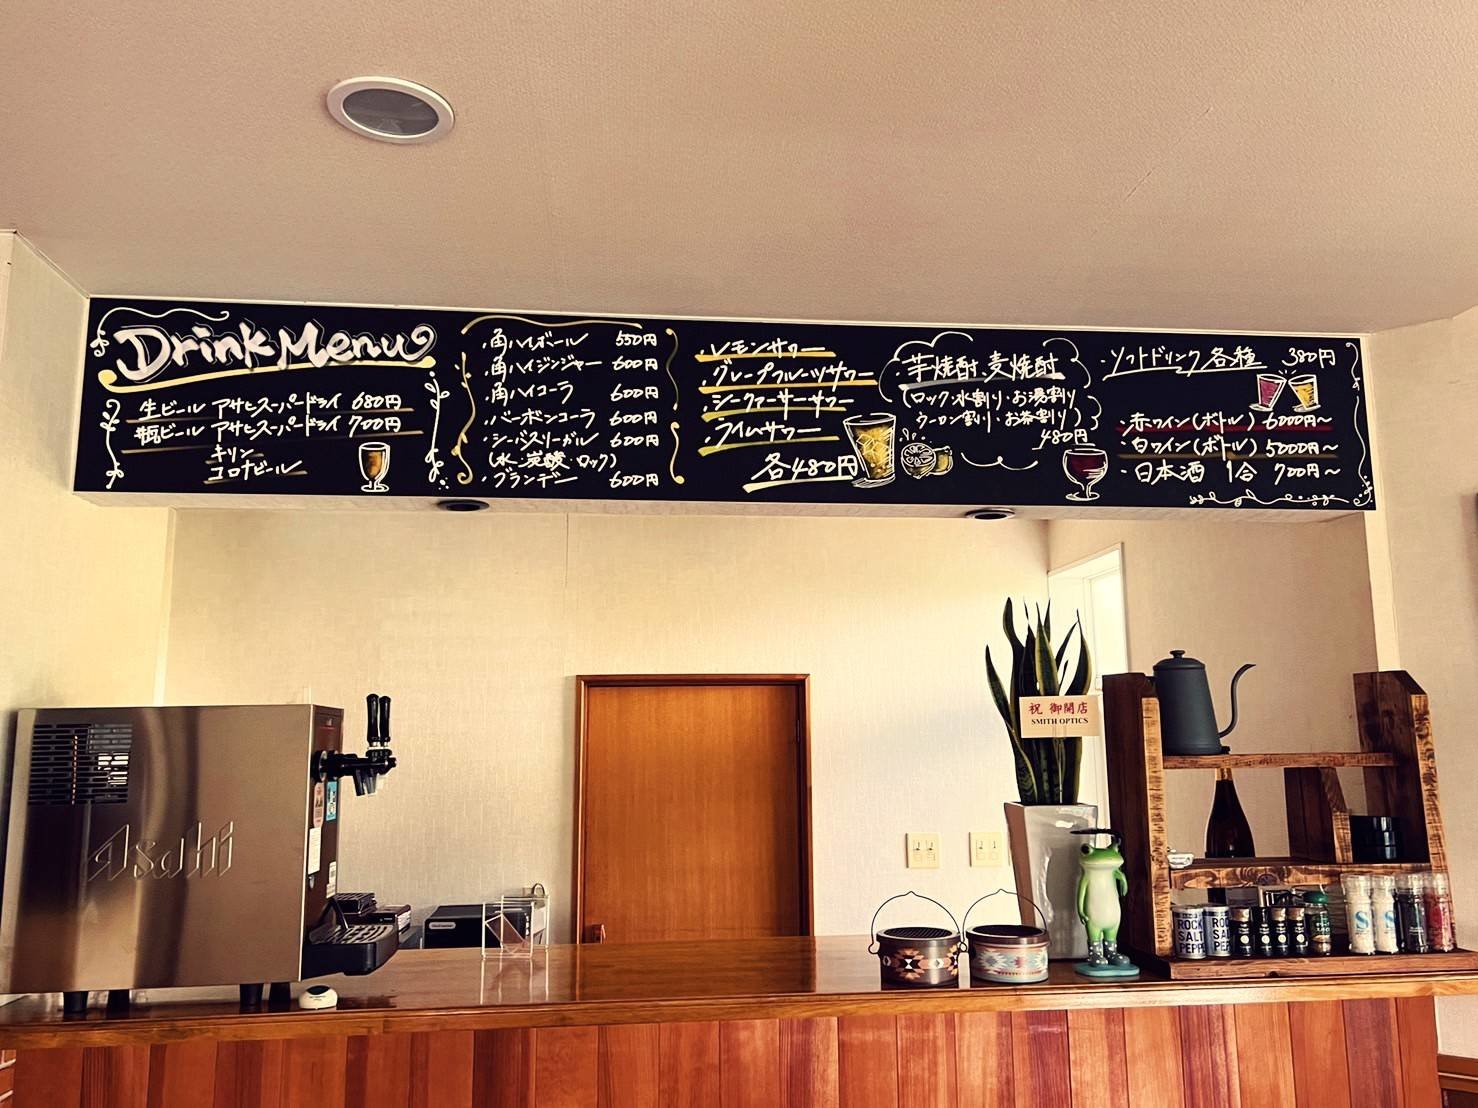 Drink Menu
生ビール アサヒスーパードライ 680円
瓶ビール アサヒスーパードライ 700円
キリン
コロナビール
・角ハイボール 550円
・角ハイジンジャー 600円
・角ハイコーラ 600円
・バーボンコーラ 600円
・シーバスリーガル 600円
(水・炭酸・ロック)
・ブランデー 600円
・レモンサワー
・グレープフルーツサワー
・シークァーサーサワー
・ライムサワー
各480円
芋焼酎、麦焼酎
(ロック・水割り・お湯割り
ウーロン割り・お茶割り)
480円
・ソフトドリンク各種 380円
・赤ワイン(ボトル) 6000円～
・白ワイン(ボトル) 5000円～
・日本酒 1合 700円～
祝 御開店
SMITH OPTICS
Asahi
ROCK
SALT
PEPP
ROC
SAL
PEPP